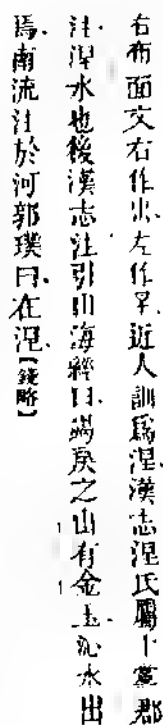 右布面文右作𣥂左作𦉭近人訓爲涅漢志涅氏屬上黨郡
注涅水也後漢志注引山海經曰謁戾之山有金玉沁水出
焉南流注於河郭璞曰在涅【錢略】